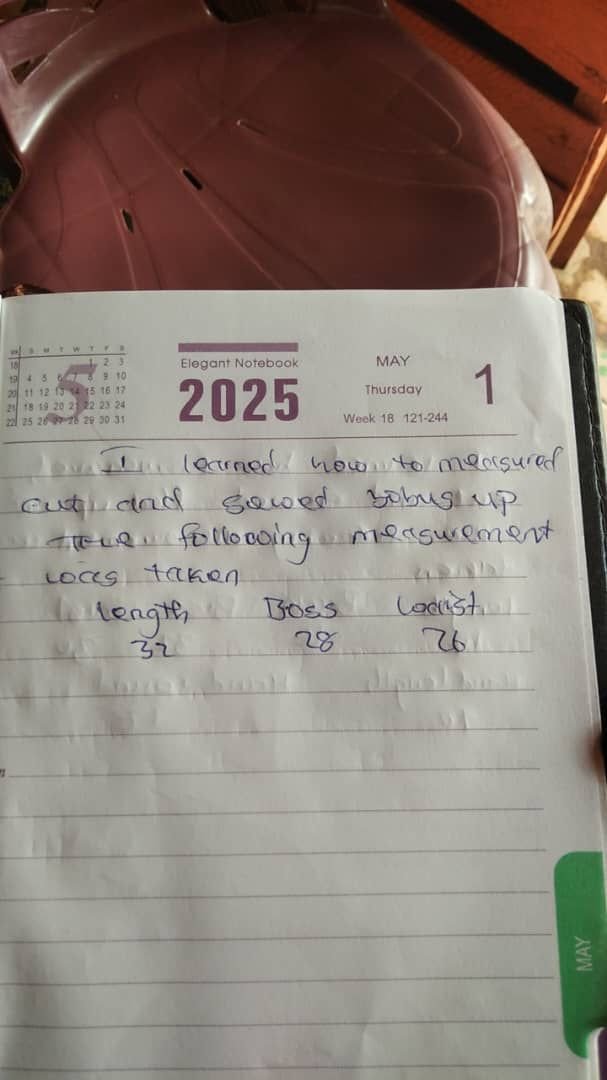 Wk S M T W T F S
18 1 2 3
19 4 5 6 7 8 9 10
20 11 12 13 14 15 16 17
21 18 19 20 21 22 23 24
22 25 26 27 28 29 30 31
5
Elegant Notebook
2025
MAY
Thursday
Week 18 121-244
1
I learned how to measured
cut and sewed bobus up
The following measurement
was taken
length Boss waist
32 28 26
MAY